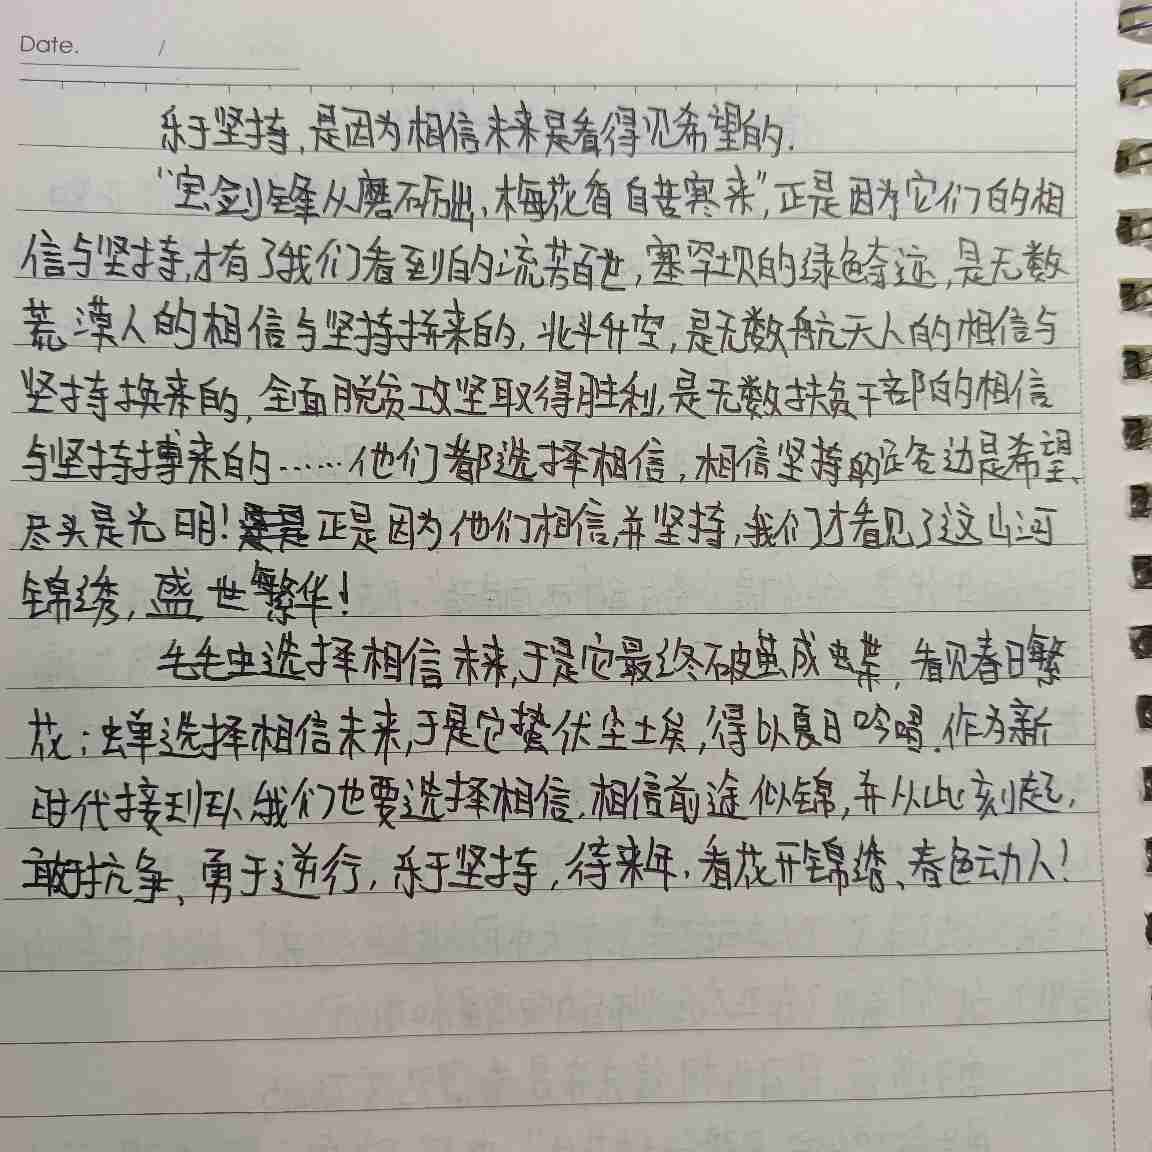 Date. /
乐于坚持,是因为相信未来是看得见希望的.
“宝剑锋从磨砺出,梅花香自苦寒来”,正是因为它们的相
信与坚持,才有了我们看到的流芳百世,塞罕坝的绿色奇迹,是无数
荒漠人的相信与坚持拼来的,北斗升空,是无数航天人的相信与
坚持换来的,全面脱贫攻坚取得胜利,是无数扶贫干部的相信
与坚持搏来的……他们都选择相信,相信坚持的这边是希望、
尽头是光明!正是因为他们相信,并坚持,我们才看见了这山河
锦绣,盛世繁华!
毛毛虫选择相信未来,于是它最终破茧成蝶,看见春日繁
花;蝉选择相信未来,于是它蛰伏尘土埃,得以夏日吟唱.作为新
时代接到队,我们也要选择相信,相信前途似锦,并从此刻起,
敢于抗争、勇于逆行,乐于坚持,待来年,看花开锦绣、春色动人!